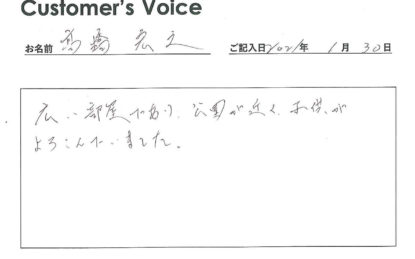 Customer's Voice
お名前 高橋 宏之 ご記入日2021年 1月 30日
広い部屋であり、公園が近く、子供が
よろこんでいました。